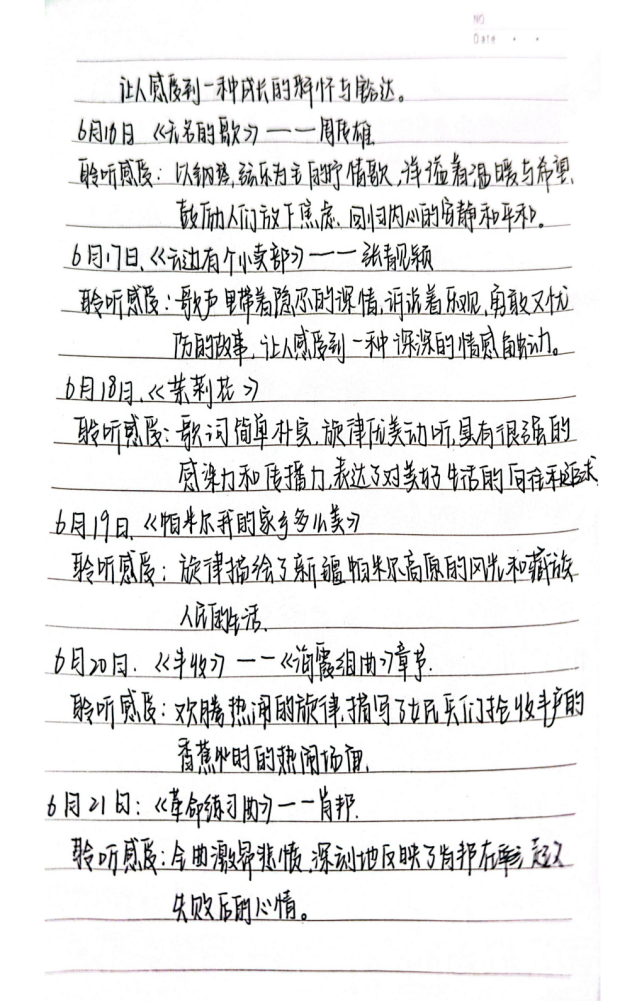 NO
Date
让人感受到一种成长的释怀与豁达。
6月16日《无名的歌》——周传雄
聆听感受：以钢琴,弦乐为主的抒情歌,洋溢着温暖与希望,
鼓励人们放下焦虑,回归内心的安静和平和。
6月17日,《云边有个小卖部》——张靓颖
聆听感受：歌声里带着隐忍的深情,诉说着乐观,勇敢又忧
伤的故事,让人感受到一种深深的情感自愈力。
6月18日,《茉莉花》
聆听感受：歌词简单朴实,旋律优美动听,具有很强的
感染力和传播力,表达了对美好生活的向往和追求
6月19日,《帕米尔我的家乡多么美》
聆听感受：旋律描绘了新疆帕米尔高原的风光和藏族
人民的生活.
6月20日.《丰收》——《海霞组曲》章节.
聆听感受：欢腾热闹的旋律,描写了女民兵们抢收丰产的
香蕉 时的热闹场面.
6月21日：《革命练习曲》——肖邦.
聆听感受：全曲激昂悲愤,深刻地反映了肖邦在 起义
失败后的心情。